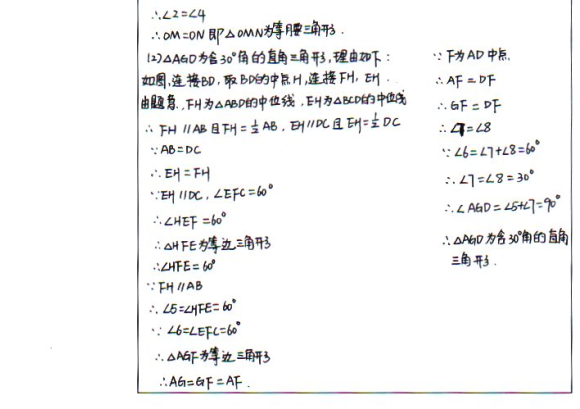 ∴∠2=∠4
∴OM=ON 即△OMN为等腰三角形.
(2)△AGD为含30°角的直角三角形,理由如下:
如图,连接BD,取BD的中点H,连接FH,EH.
由题意,FH为△ABD的中位线,EH为△BCD的中位线
∴FH∥AB且FH=½AB,EH∥DC且EH=½DC
∵AB=DC
∴EH=FH
∵EH∥DC,∠EFC=60°
∴∠HEF=60°
∴△HFE为等边三角形
∴∠HFE=60°
∵FH∥AB
∴∠5=∠HFE=60°
∵∠6=∠EFC=60°
∴△AGF为等边三角形
∴AG=GF=AF.
∵F为AD中点
∴AF=DF
∴GF=DF
∴∠7=∠8
∵∠6=∠7+∠8=60°
∴∠7=∠8=30°
∴∠AGD=∠5+∠7=90°
∴△AGD为含30°角的直角
三角形.